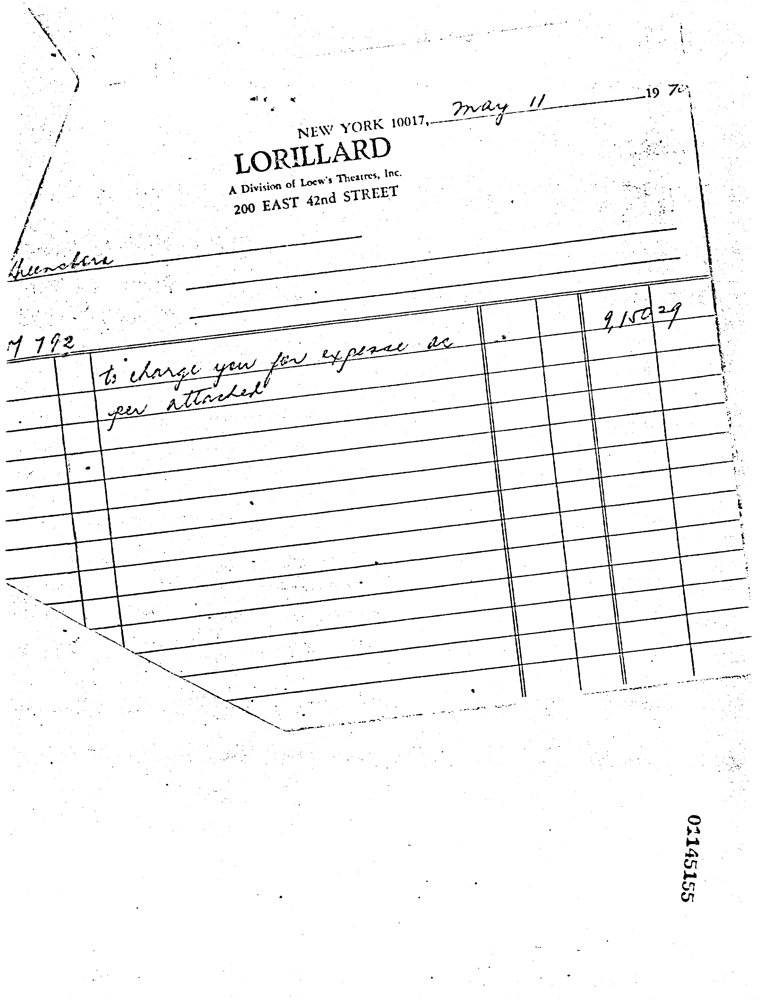 NEW YORK 10017, May 11 19 70
LORILLARD
A Division of Loew's Theatres, Inc.
200 EAST 42nd STREET
792
to charge you for expense as 9,150 29
per attached
01145155